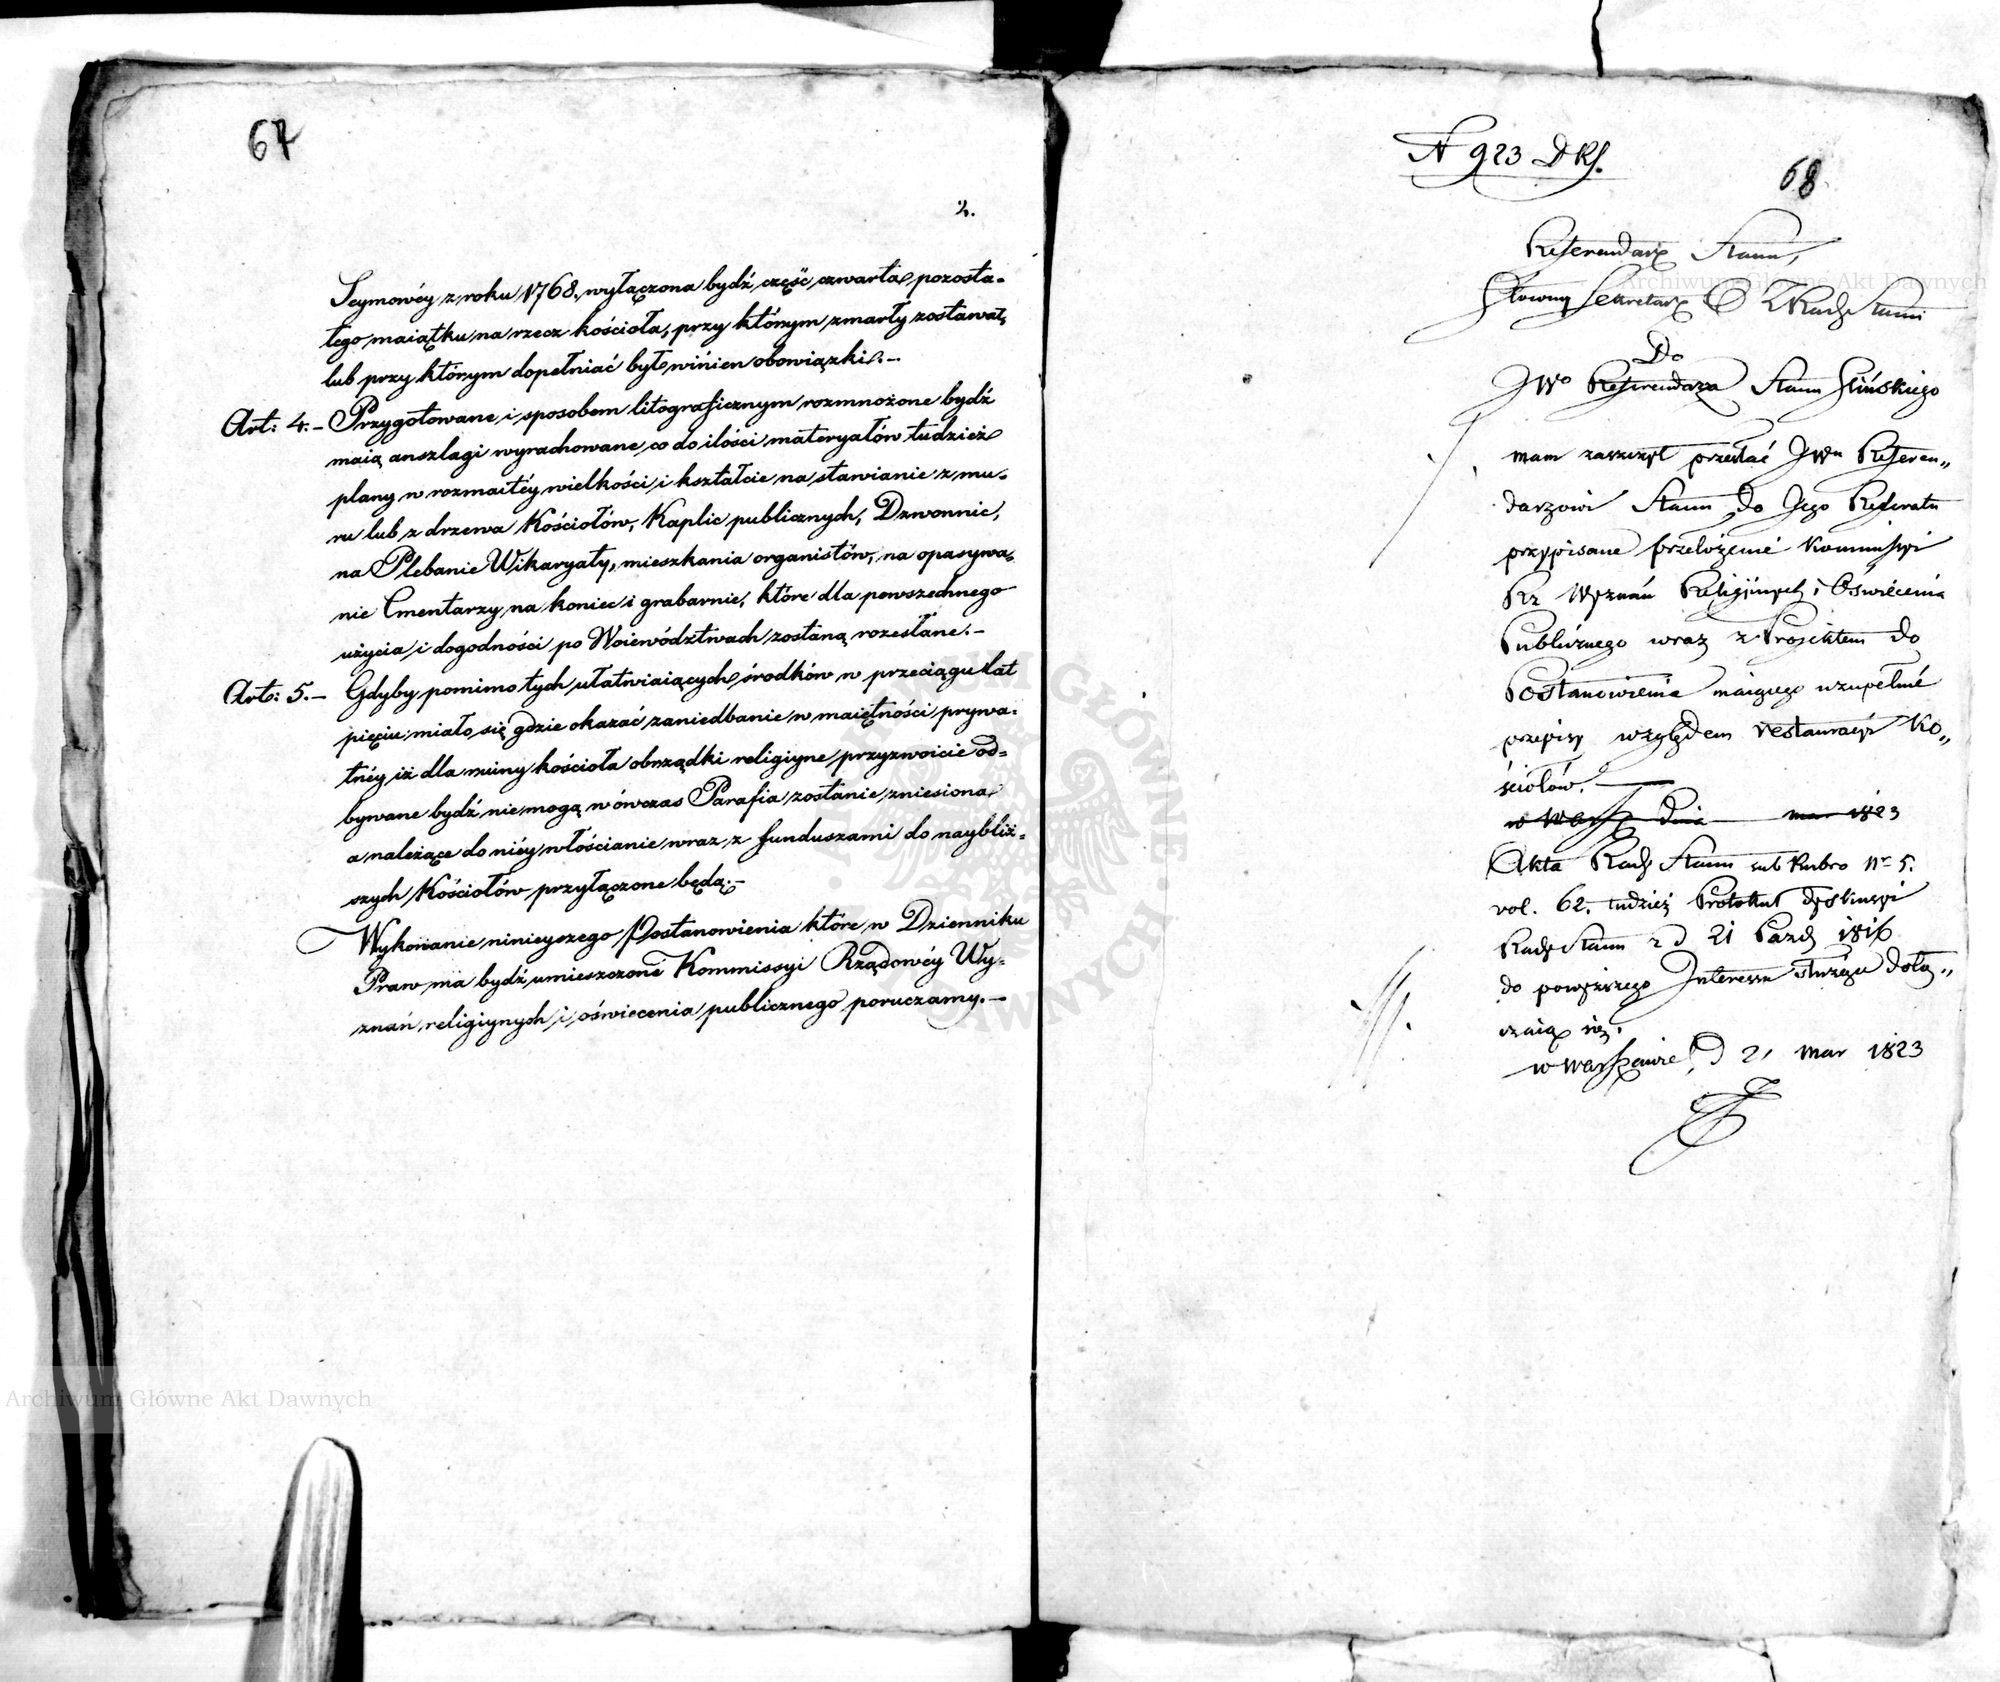 67
2.
Seymowéy z roku 1768. wyłączona bydź część czwarta pozosta-
łego maiątku na rzecz kościoła, przy którym zmarły zostawał,
lub przy którym dopełniać był winien obowiązki.-
Art: 4.- Przygotowane i sposobem litograficznym rozmnożone bydź
maią anszlagi wyrachowane co do ilości materyałów tudzież
plany w rozmaitéy wielkości i kształcie na stawianie z mu-
ru lub z drzewa Kościołów, Kaplic publicznych, Dzwonnic,
na Plebanie Wikaryaty, mieszkania organistów, na opasywa-
nie Cmentarzy, na koniec i grabarnie, które dla powszechnego
użycia i dogodności po Woiewództwach zostaną rozesłane.-
Art: 5.- Gdyby pomimo tych ułatwiaiących środków w przeciągu lat
pięciu miało się gdzie okazać zaniedbanie w maiętności prywa-
tnéy, iż dla ruiny kościoła obrządki religiyne przyzwoicie od-
bywane bydź nie mogą wówczas Parafia zostanie zniesiona
a należące do niéy włościanie wraz z funduszami do naybliż-
szych Kościołów przyłączone będą.-
Wykonanie ninieyszego Postanowienia które w Dzienniku
Praw ma bydź umieszczone Kommissyi Rządowéy Wy-
znań religiynych i oświecenia publicznego poruczamy.-
N 923 DRS.
68
Referendarz Stanu,
Główny Sekretarz Rady Stanu
Do
JWo Referendarza Stanu Glińskiego
mam zaszczyt przesłać JWu Referen„
darzowi Stanu do Jego Referatu
przypisane przełożenie Kommissyi
Rz Wyznań Religijnych i Oświecenia
Publicznego wraz z Projektem do
Postanowienia maiącego uzupełnić
przepisy względem restauracyi Ko„
ściołów.
w Warsz dnia mar 1823
Akta Rady Stanu sub Rubro Nr 5.
vol. 62. tudzież Protokuł dyskussyi
Rady Stanu z d 21 Paźdz 1816
do powyższego Interessu służący dołą„
czaią się.
w Warszawie d 21 mar 1823
Archiwum Główne Akt Dawnych
Archiwum Główne Akt Dawnych
ARCHIWUM GŁÓWNE AKT DAWNYCH